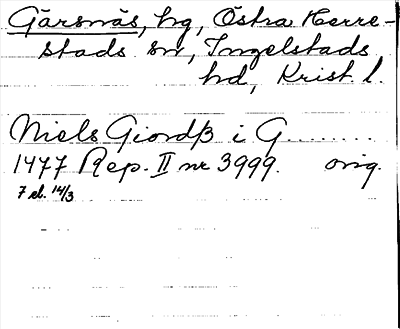 Gärsnäs, hg, Östra Herre-
stads sn, Ingelstads
hd, Krist l.
Niels Giordß i G........
1477 Rep. II nr 3999. orig.
7 el. 14/3